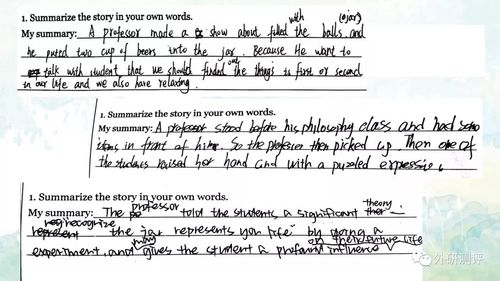 1. Summarize the story in your own words.
with (a jar)
My summary: A professor made a show about filled the balls. and
he puted two cup of beers into the jar. Because He want to
talk with student, that we should finded out the things is first or second
in our life and we also have relaxing.
1. Summarize the story in your own words.
My summary: A professor stood before his philosophy class and had some
items in front of him. So the professor then picked up. Then one of
the students raised her hand and with a puzzled expression.
1. Summarize the story in your own words.
professor theory
My summary: The told the students a significant
recognize
represent the jar represents you life. by doing a
may on their future life
experiment. and gives the student a profound influence
外研测评